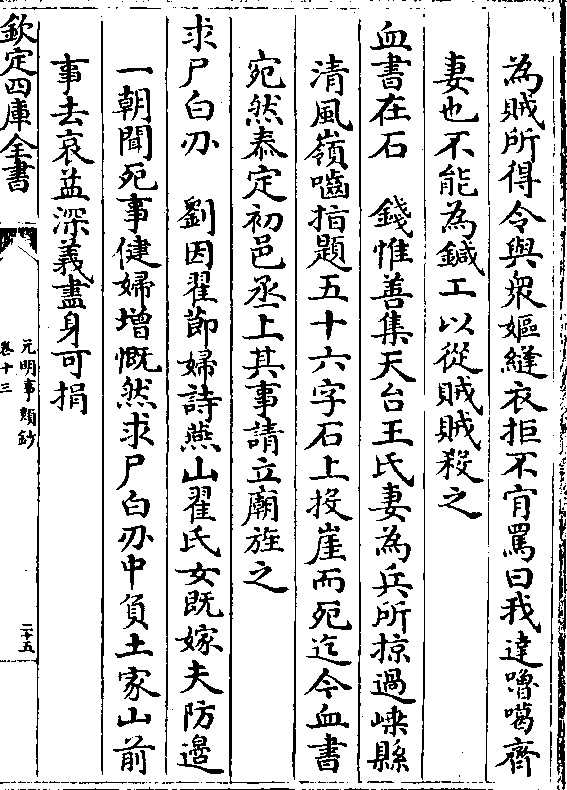 為賊所得令與衆嫗縫衣拒不肯罵曰我達嚕噶齊
妻也不能為鍼工以從賊賊殺之
血書在石　錢惟善集天台王氏妻為兵所掠過嵊縣
清風嶺嚙指題五十六字石上投崖而死迄今血書
宛然泰定初邑丞上其事請立廟旌之
求尸白刃　劉因翟節婦詩燕山翟氏女既嫁夫防邉
一朝聞死事健婦增慨然求尸白刃中負土家山前
事去哀益深義盡身可捐
欽定四庫全書
元明事類鈔
卷十三
二十五